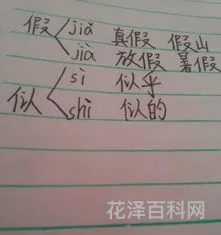 假 jiǎ 真假 假山
jià 放假 暑假
似 sì 似乎
shì 似的
花泽百科网